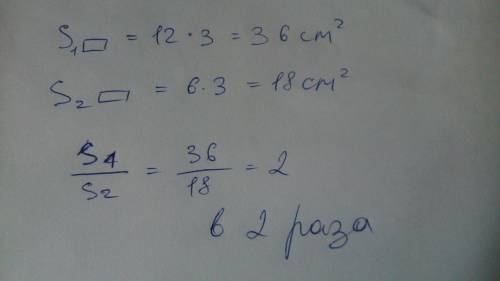 S₁▭ = 12 · 3 = 36 cm²
S₂▭ = 6 · 3 = 18 cm²
S1/S2 = 36/18 = 2
в 2 раза